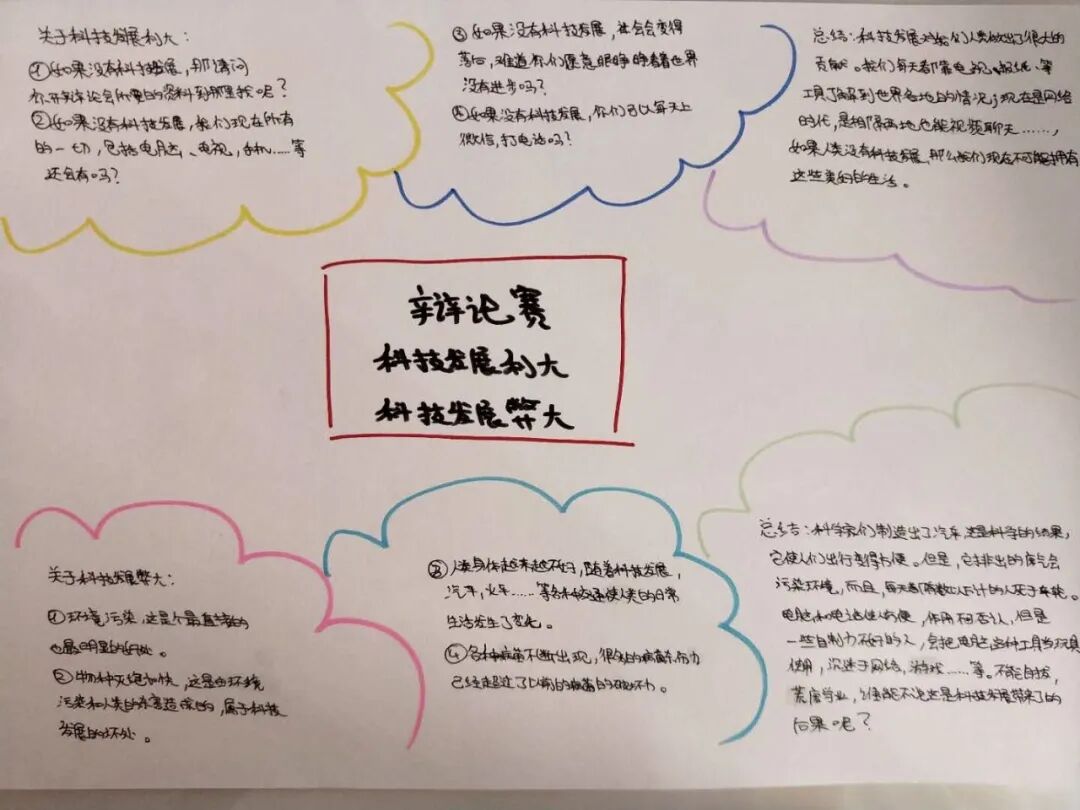 关于科技发展利大：
①如果没有科技发展，那请问
你开辩论会所要的资料到那里找呢？
②如果没有科技发展，我们现在所有
的一切，包括电脑、电视，手机……等
还会有吗？
③如果没有科技发展，社会会变得
落后，难道你们愿意眼睁睁看着世界
没有进步吗？
④如果没有科技发展，你们可以每天上
微信，打电话吗？
总结：科技发展对我们人类做出了很大的
贡献。我们每天都靠电视、报纸、等
工具了解到世界各地上的情况；现在是网络
时代，是相隔两地也能视频聊天……，
如果人类没有科技发展，那么我们现在不可能拥有
这些美好的生活。
辩论赛
科技发展利大
科技发展弊大
关于科技发展弊大：
①环境污染，这是个最直接的
也最明显的坏处。
②物种灭绝加快，这是由环境
污染和人类的杀害造成的，属于科技
发展的坏处。
③人类身体越来越不好，随着科技发展，
汽车，火车……等各种交通使人类的日常
生活发生了变化。
④各种病毒不断出现，很多的病毒能力
已经超过了以前的病毒的破坏力。
总结：科学家们制造出了汽车，这是科学的结果，
它使人们出行变得方便。但是，它排出的废气会
污染环境，而且，每天都有数以千计的人死于车轮。
电脑和电话使人方便，作用不可否认，但是
一些自制力不好的人，会把电脑这种工具当玩具
使用，沉迷于网络，游戏……等。不能自拔，
荒废学业，谁能不说这是科技发展带来了的
后果呢？